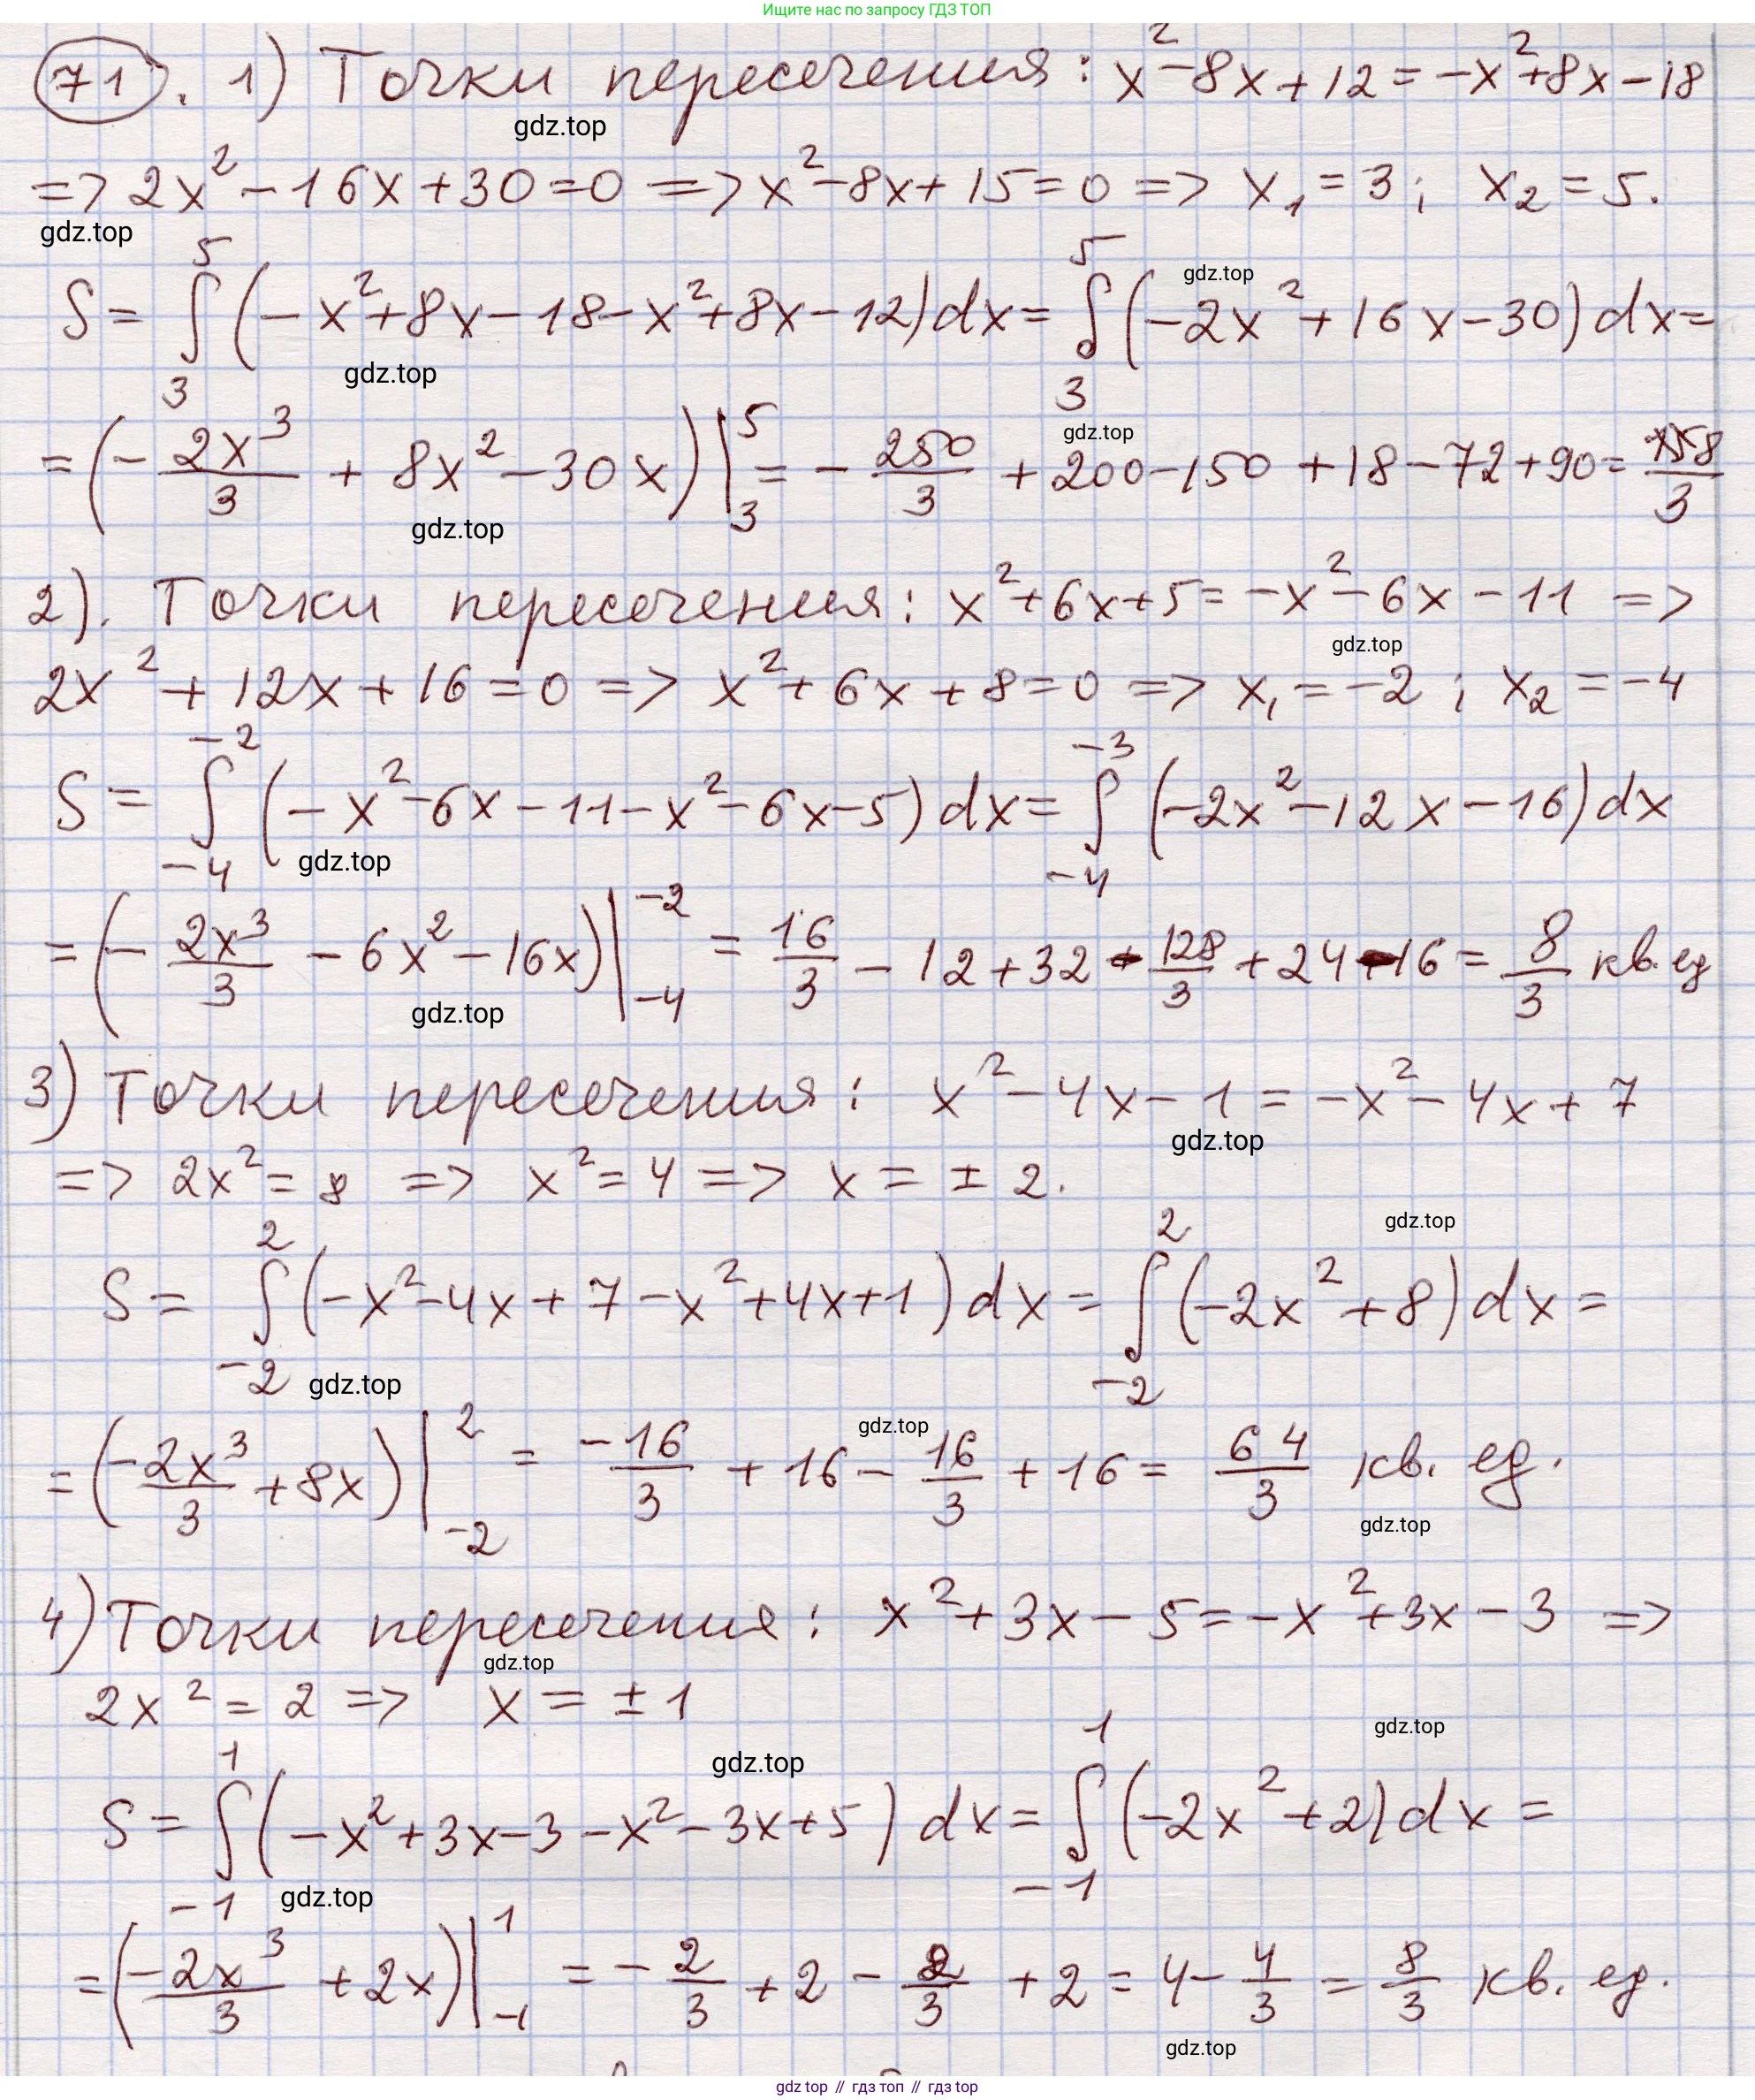 Ищите нас по запросу ГДЗ ТОП
71. 1) Точки пересечения: x² - 8x + 12 = -x² + 8x - 18
gdz.top
=> 2x² - 16x + 30 = 0 => x² - 8x + 15 = 0 => x₁ = 3; x₂ = 5.
gdz.top
gdz.top
S = ∫₃⁵ (-x² + 8x - 18 - x² + 8x - 12) dx = ∫₃⁵ (-2x² + 16x - 30) dx =
gdz.top
gdz.top
= (- 2x³/3 + 8x² - 30x) |₃⁵ = - 250/3 + 200 - 150 + 18 - 72 + 90 = 8/3
gdz.top
2). Точки пересечения: x² + 6x + 5 = -x² - 6x - 11 =>
gdz.top
2x² + 12x + 16 = 0 => x² + 6x + 8 = 0 => x₁ = -2; x₂ = -4
S = ∫₋₄⁻² (-x² - 6x - 11 - x² - 6x - 5) dx = ∫₋₄⁻³ (-2x² - 12x - 16) dx
gdz.top
= (- 2x³/3 - 6x² - 16x) |₋₄⁻² = 16/3 - 12 + 32 - 128/3 + 24 - 16 = 8/3 кв. ед
gdz.top
3) Точки пересечения: x² - 4x - 1 = -x² - 4x + 7
gdz.top
=> 2x² = 8 => x² = 4 => x = ± 2.
gdz.top
S = ∫₋₂² (-x² - 4x + 7 - x² + 4x + 1) dx = ∫₋₂² (-2x² + 8) dx =
gdz.top
gdz.top
= (-2x³/3 + 8x) |₋₂² = -16/3 + 16 - 16/3 + 16 = 64/3 кв. ед.
gdz.top
4) Точки пересечения: x² + 3x - 5 = -x² + 3x - 3 =>
gdz.top
2x² = 2 => x = ± 1
gdz.top
gdz.top
S = ∫₋₁¹ (-x² + 3x - 3 - x² - 3x + 5) dx = ∫₋₁¹ (-2x² + 2) dx =
gdz.top
= (-2x³/3 + 2x) |₋₁¹ = - 2/3 + 2 - 2/3 + 2 = 4 - 4/3 = 8/3 кв. ед.
gdz.top
gdz top // гдз топ // гдз top